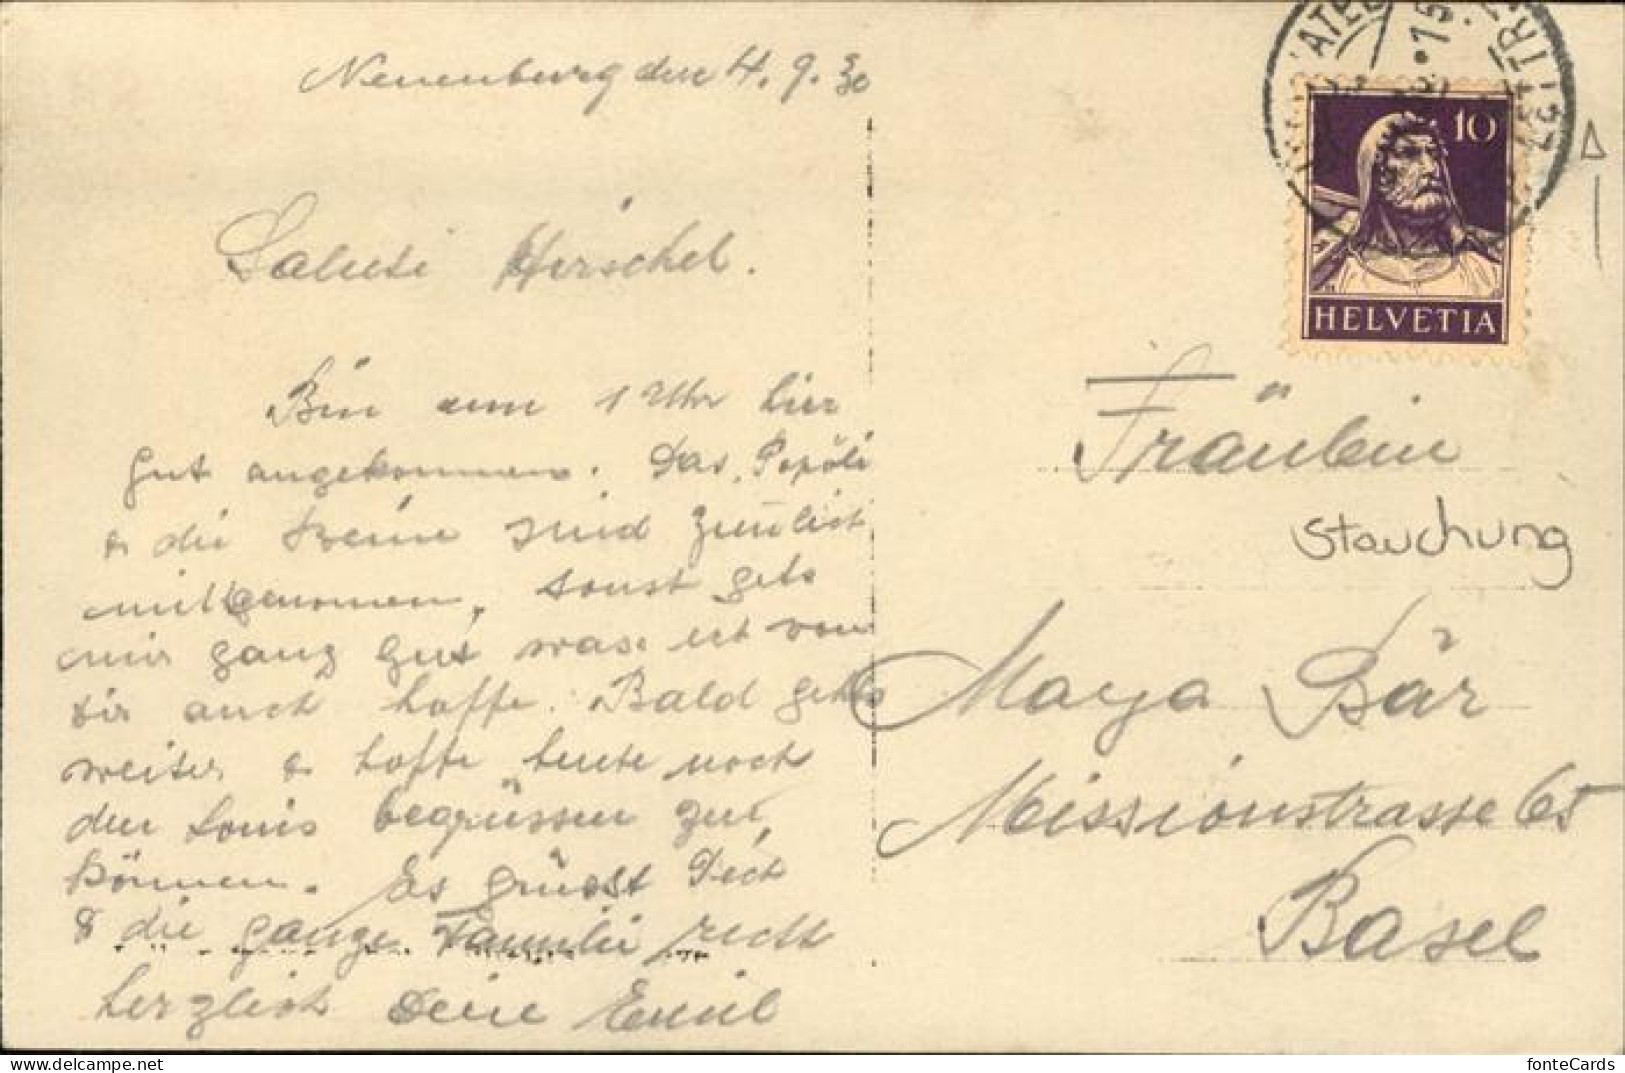 Neuenburg den 4. 9. 30
Saluti Herschel.
Bin um 1 Uhr hier
gut angekommen. Das Popöli
& die Beine sind zimlich
mitgenommen, sonst gets
mir ganz gut was ich von
dir auch hoffe. Bald gehts
weiter & hoffe heute noch
den Louis begrüssen zu
können. Es grüsst Dich
& die ganze Familie recht
herzlich Deine Emil
10
HELVETIA
Fräulein
Stauchung
Maya Bär
Missionstrasse 65
Basel
fonteCards